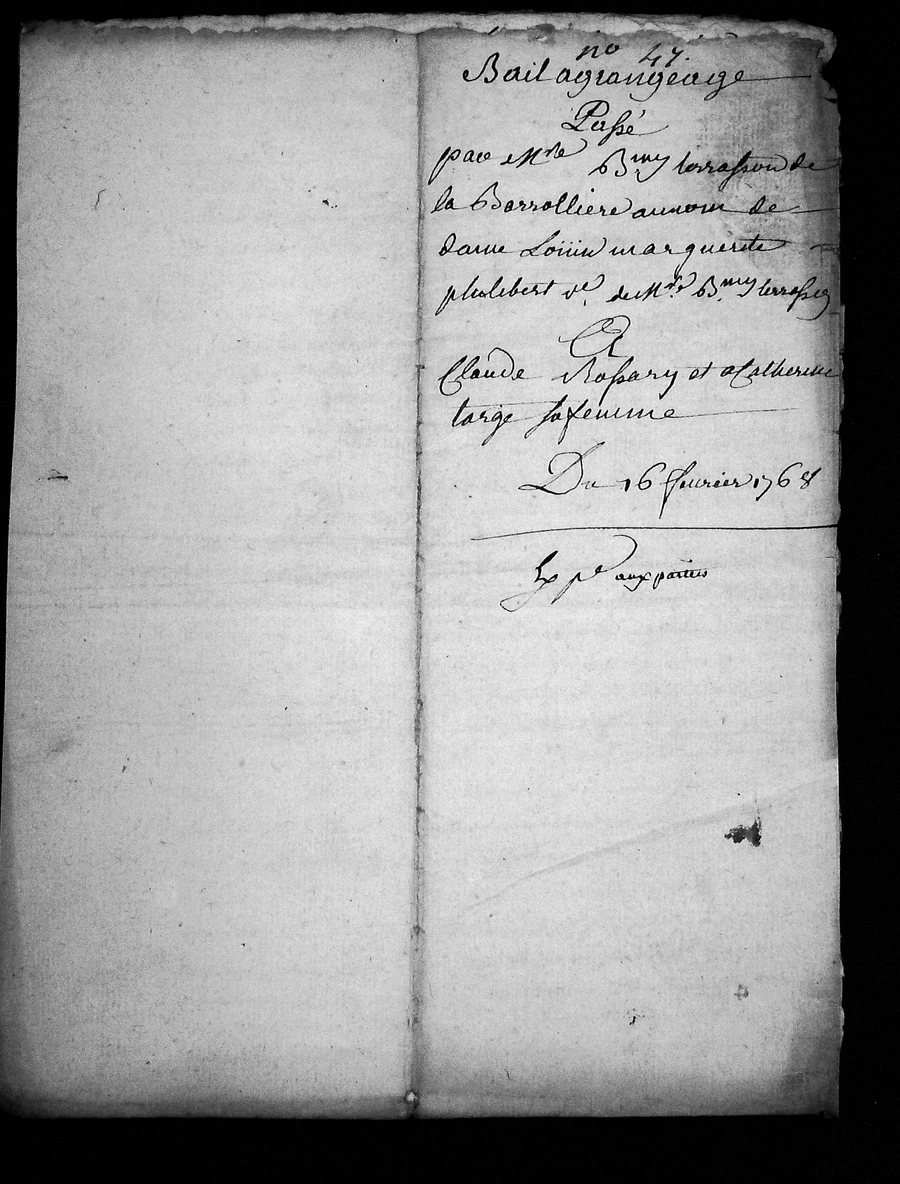 no 47.
Bail agrangeage
Passé
par Mre Bmy terrasson de
la Barrolliere au nom de
dame marguerite
philibert ve. de Mre. B.my terrasson
A
Claude Rossary et Catherine
targe sa femme
Du 16 fevrier 1768
Exp.e aux parties